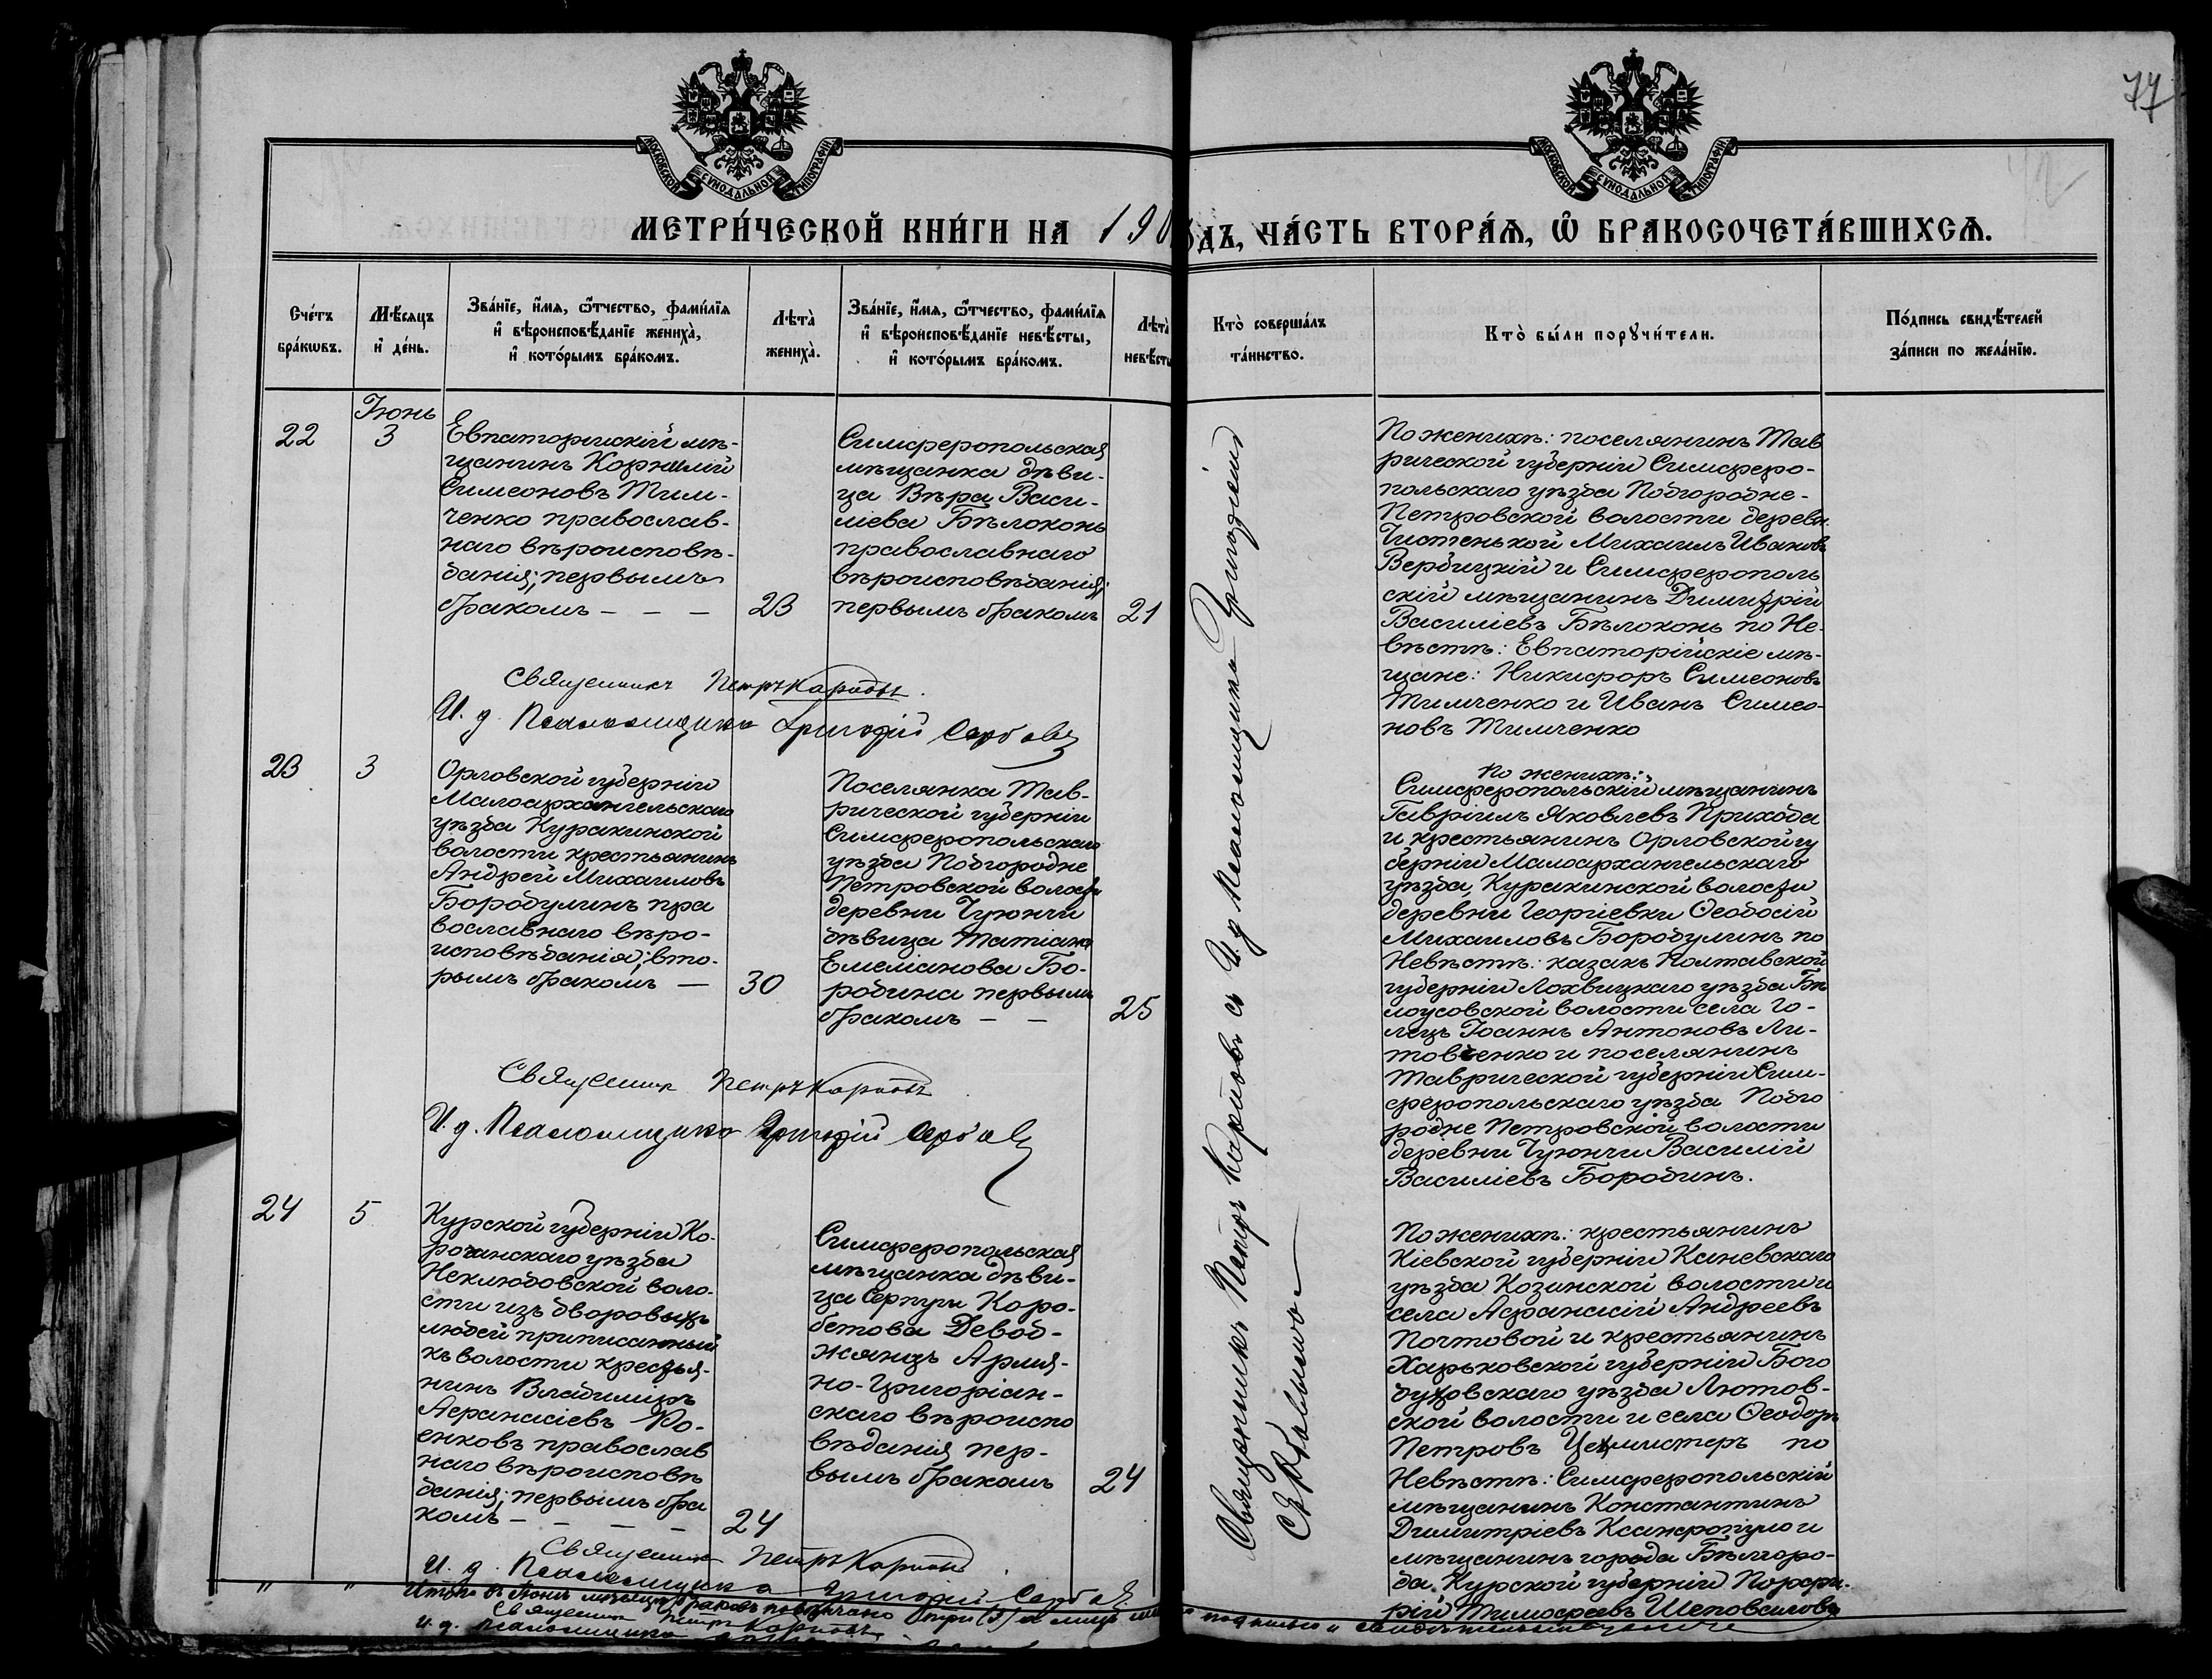 77
МОСКОВСКОЙ СѴНОДАЛЬНОЙ ТИПОГРАФІИ
МОСКОВСКОЙ СѴНОДАЛЬНОЙ ТИПОГРАФІИ
МЕТРИ́ЧЕСКОЙ КНИ́ГИ НА 190
ОДЪ, ЧА́СТЬ ВТОРА́Ѧ, Ѿ БРАКОСОЧЕТА́ВШИХСѦ.
Сче́тъ
бра́кѡвъ.
Мѣ́сяцъ
и҆ де́нь.
Зва́нїе, и҆́мѧ, ѻ҆́тчество, фами́лїѧ
и҆ вѣроисповѣ́данїе жениха̀,
и҆ кото́рымъ бра́комъ.
Лѣта̀
жениха̀.
Зва́нїе, и҆́мѧ, ѻ҆́тчество, фами́лїѧ
и҆ вѣроисповѣ́данїе невѣ́сты,
и҆ кото́рымъ бра́комъ.
Лѣта̀
невѣ́сты
Кто̀ соверша́лъ
та́инство.
Кто̀ бы́ли порꙋчи́тели.
По́дпись свидѣ́телей
за́писи по жела́нїю.
Іюнь
22
3
Евпаторийскій мѣ-
щанинъ Корнилій
Симеоновъ Тим-
ченко православ-
наго вѣроисповѣ-
данія; первымъ
бракомъ - - -
23
Симферопольская
мѣщанка дѣви-
ца Вѣра Васи-
ліева Бѣлоконь
православнаго
вѣроисповѣданія;
первымъ бракомъ
21
По женихѣ: поселянинъ Тав
рической губерніи Симферо-
польскаго уѣзда Подгородне-
Петровской волости деревн.
Чистенькой Михаилъ Ивановъ
Вербицкій и Симферополь
скій мѣщанинъ Димитрій
Василіевъ Бѣлоконь по Не-
вѣстѣ: Евпаторійскіе мѣ-
щане: Никифоръ Симеоновъ
Тимченко и Иванъ Симео-
новъ Тимченко
Священникъ Петръ Карповъ.
И. д. Псаломщика Григорій
23
3
Орловской губерніи
Малоархангельскаго
уѣзда Куракинской
волости крестьянинъ
Андрей Михаиловъ
Бородулинъ пра
вославнаго вѣро-
исповѣданія; вто-
рымъ бракомъ —
30
Поселянка Тав-
рической губерніи
Симферопольскаго
уѣзда Подгородне
Петровской волости
деревни Чуюнчи
дѣвица Татіана
Емеліанова Бо-
родина первымъ
бракомъ - -
25
По женихѣ:
Симферопольскій мѣщанинъ
Гавріилъ Яковлевъ Прихода
и крестьянинъ Орловской гу
берніи Малоархангельскаго
уѣзда, Куракинской волости
деревни Георгіевки Ѳеодосій
Михаиловъ Бородулинъ по
Невѣстѣ: казакъ Полтавской
губерніи Лохвицкаго уѣзда Бѣ
лоусовской волости села Го-
лецъ Іоаннъ Антоновъ Ли-
товченко и поселянинъ
Таврической губерніи Сим-
феропольскаго уѣзда Подго
родне Петровской волости
деревни Чуюнчи Василій
Василіевъ Бородинъ.
Священникъ Петръ Карповъ
И. д. Псаломщика Григорій
24
5
Курской губерніи Ко-
рочанскаго уѣзда
Неклюдовской воло-
сти изъ дворовыхъ
людей приписанный
къ волости крестья-
нинъ Владиміръ
Афанасіевъ
православ
наго вѣроисповѣ
данія; первымъ бра
комъ - - - -
24
Симферопольская
мѣщанка дѣви-
ца Серпуи Каро-
бетова Девод-
жянцъ Армя-
но-Григоріан-
скаго вѣроиспо
вѣданія пер-
вымъ бракомъ
24
По женихѣ: крестьянинъ
Кіевской губерніи Каневскаго
уѣзда Козинской волости и
села Афанасій Андреевъ
Почтовой и крестьянинъ
Харьковской губерніи Бого
духовскаго уѣзда Лютов-
ской волости и села Ѳеодоръ
Петровъ Цехмистеръ по
Невѣстѣ: Симферопольскій
мѣщанинъ Константинъ
Димитріевъ Ксанфопуло и
мѣщанинъ города Бѣлгоро-
да, Курской губерніи Порфи-
рій Тимофеевъ Шеповаловъ
Священникъ Петръ Карповъ
И. д. Псаломщика Григорій
Итого въ Іюнѣ мѣсяцѣ браковъ повѣнчано три (3)
Священникъ Петръ Карповъ
И. д. Псаломщика
Священникъ Петръ Карповъ съ И. д. Псаломщика Григоріемъ